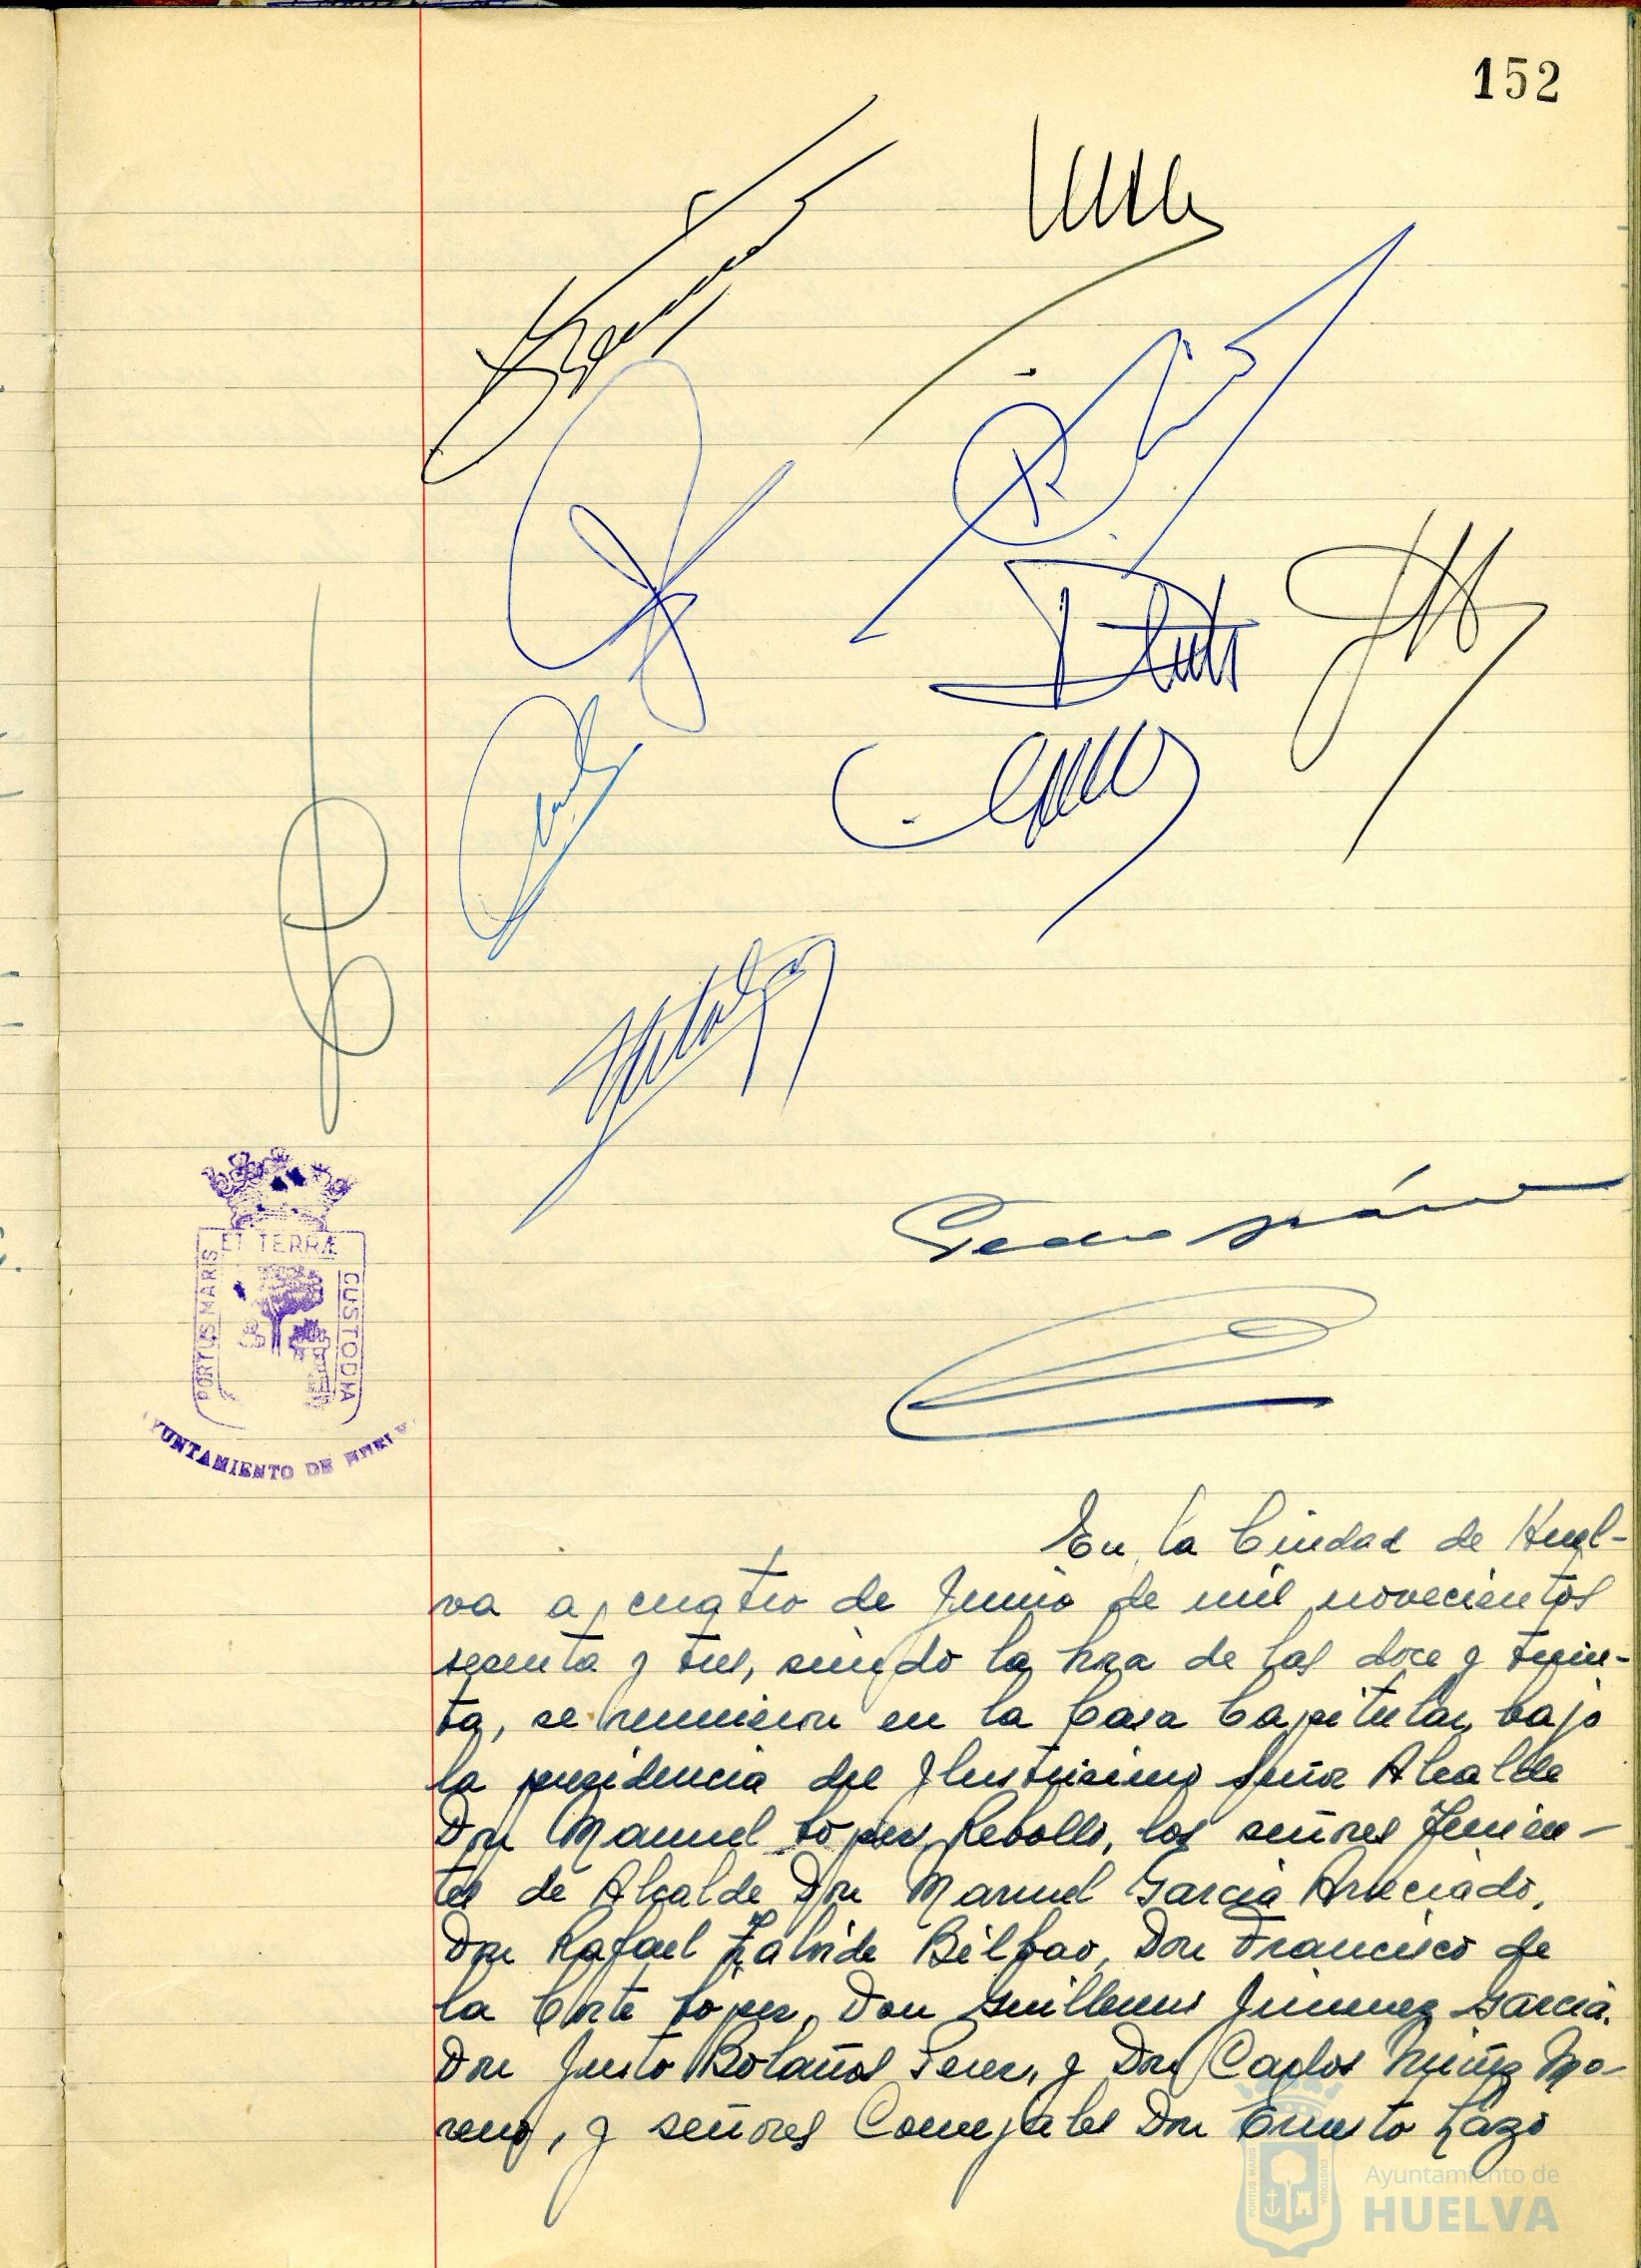 152
ET TERRÆ
PORTUS MARIS
CUSTODIA
AYUNTAMIENTO DE HUELVA
En la Ciudad de Huel-
va a cuatro de Junio de mil novecientos
sesenta y tres, siendo la hora de las doce y trein-
ta, se reunieron en la Casa Capitular, bajo
la presidencia del Ilustrisimo Señor Alcalde
Don Manuel Lopez Rebollo, los señores Tenien-
tes de Alcalde Don Manuel Garcia Areciado,
Don Rafael Zalvide Bilbao, Don Francisco de
la Corte Lopez, Don Guillermo Jimenez Garcia,
Don Justo Bolaños Perez, y Don Carlos Muñiz Mo-
reno, y señores Concejales Don Ernesto Lazo
Ayuntamiento de
HUELVA